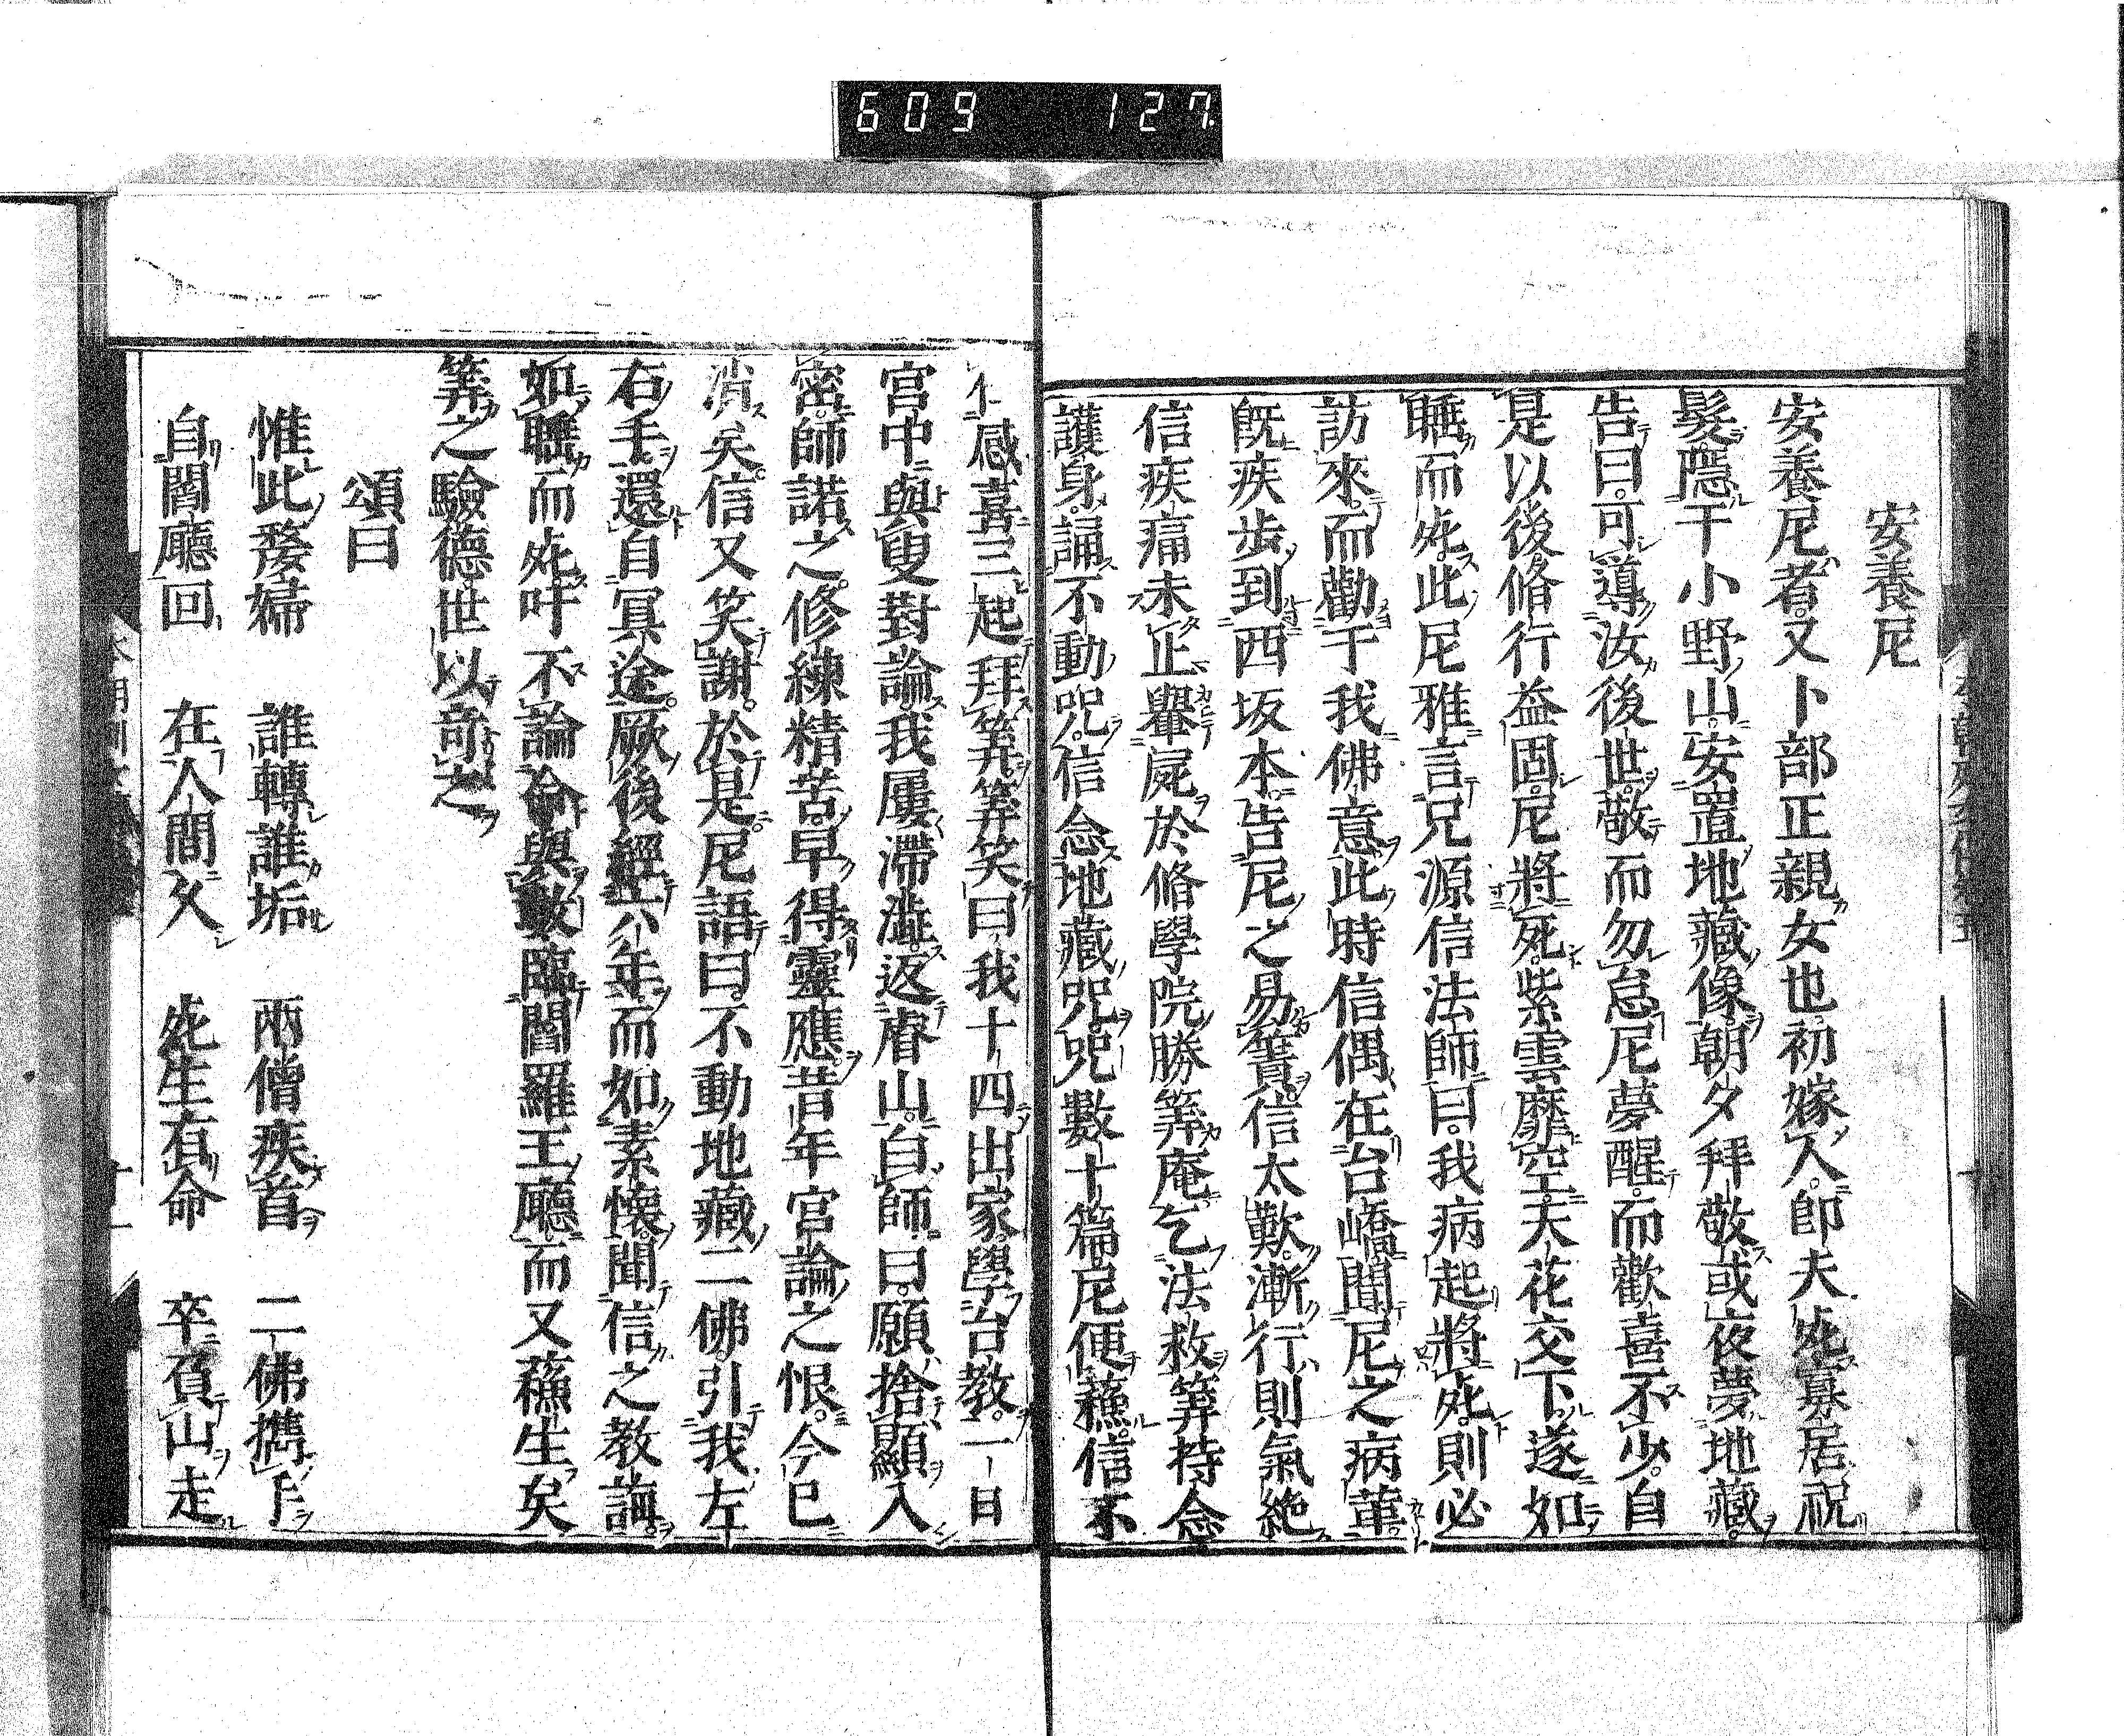 609 127
安養尼
安養尼者又卜部正親女也初嫁人即夫死寡居祝
髮隱于小野山安置地藏像朝夕拜敬或夜夢地藏
告曰可導汝後世敬而勿怠尼夢醒而歡喜不少自
是以後脩行益固尼將死紫雲靡空天花交下遂如
睡而死此尼雅言兄源信法師曰我病起將死則必
訪來而勸于我佛意此時信偶在台嶠聞尼之病革
既疾步到西坂本告尼之易簀信太歎漸行則氣絶
信疾痛未止轝屍於脩學院勝筭庵乞法救筭持念
護身誦不動咒信念地藏咒咒數十篇尼便蘇信不
感喜三起拜筭筭笑曰我十四出家學台教一日
宮中與叟對論我屢滯澁返睿山白師曰願捨顯入
密師諾之修練精苦早得靈應昔年宮論之恨今已
消矣信又笑謝於是尼語曰不動地藏二佛引我左
右手還自冥途厥後經六年而如素懷聞信之教誨
如睡而死吁不論命與數臨閻羅王廳而又蘇生矣
筭之驗德世以奇之
頌曰
惟此嫠婦 誰轉誰垢 兩僧疾首 二佛携手
自閻廳回 在人間久 死生有命 卒負山走